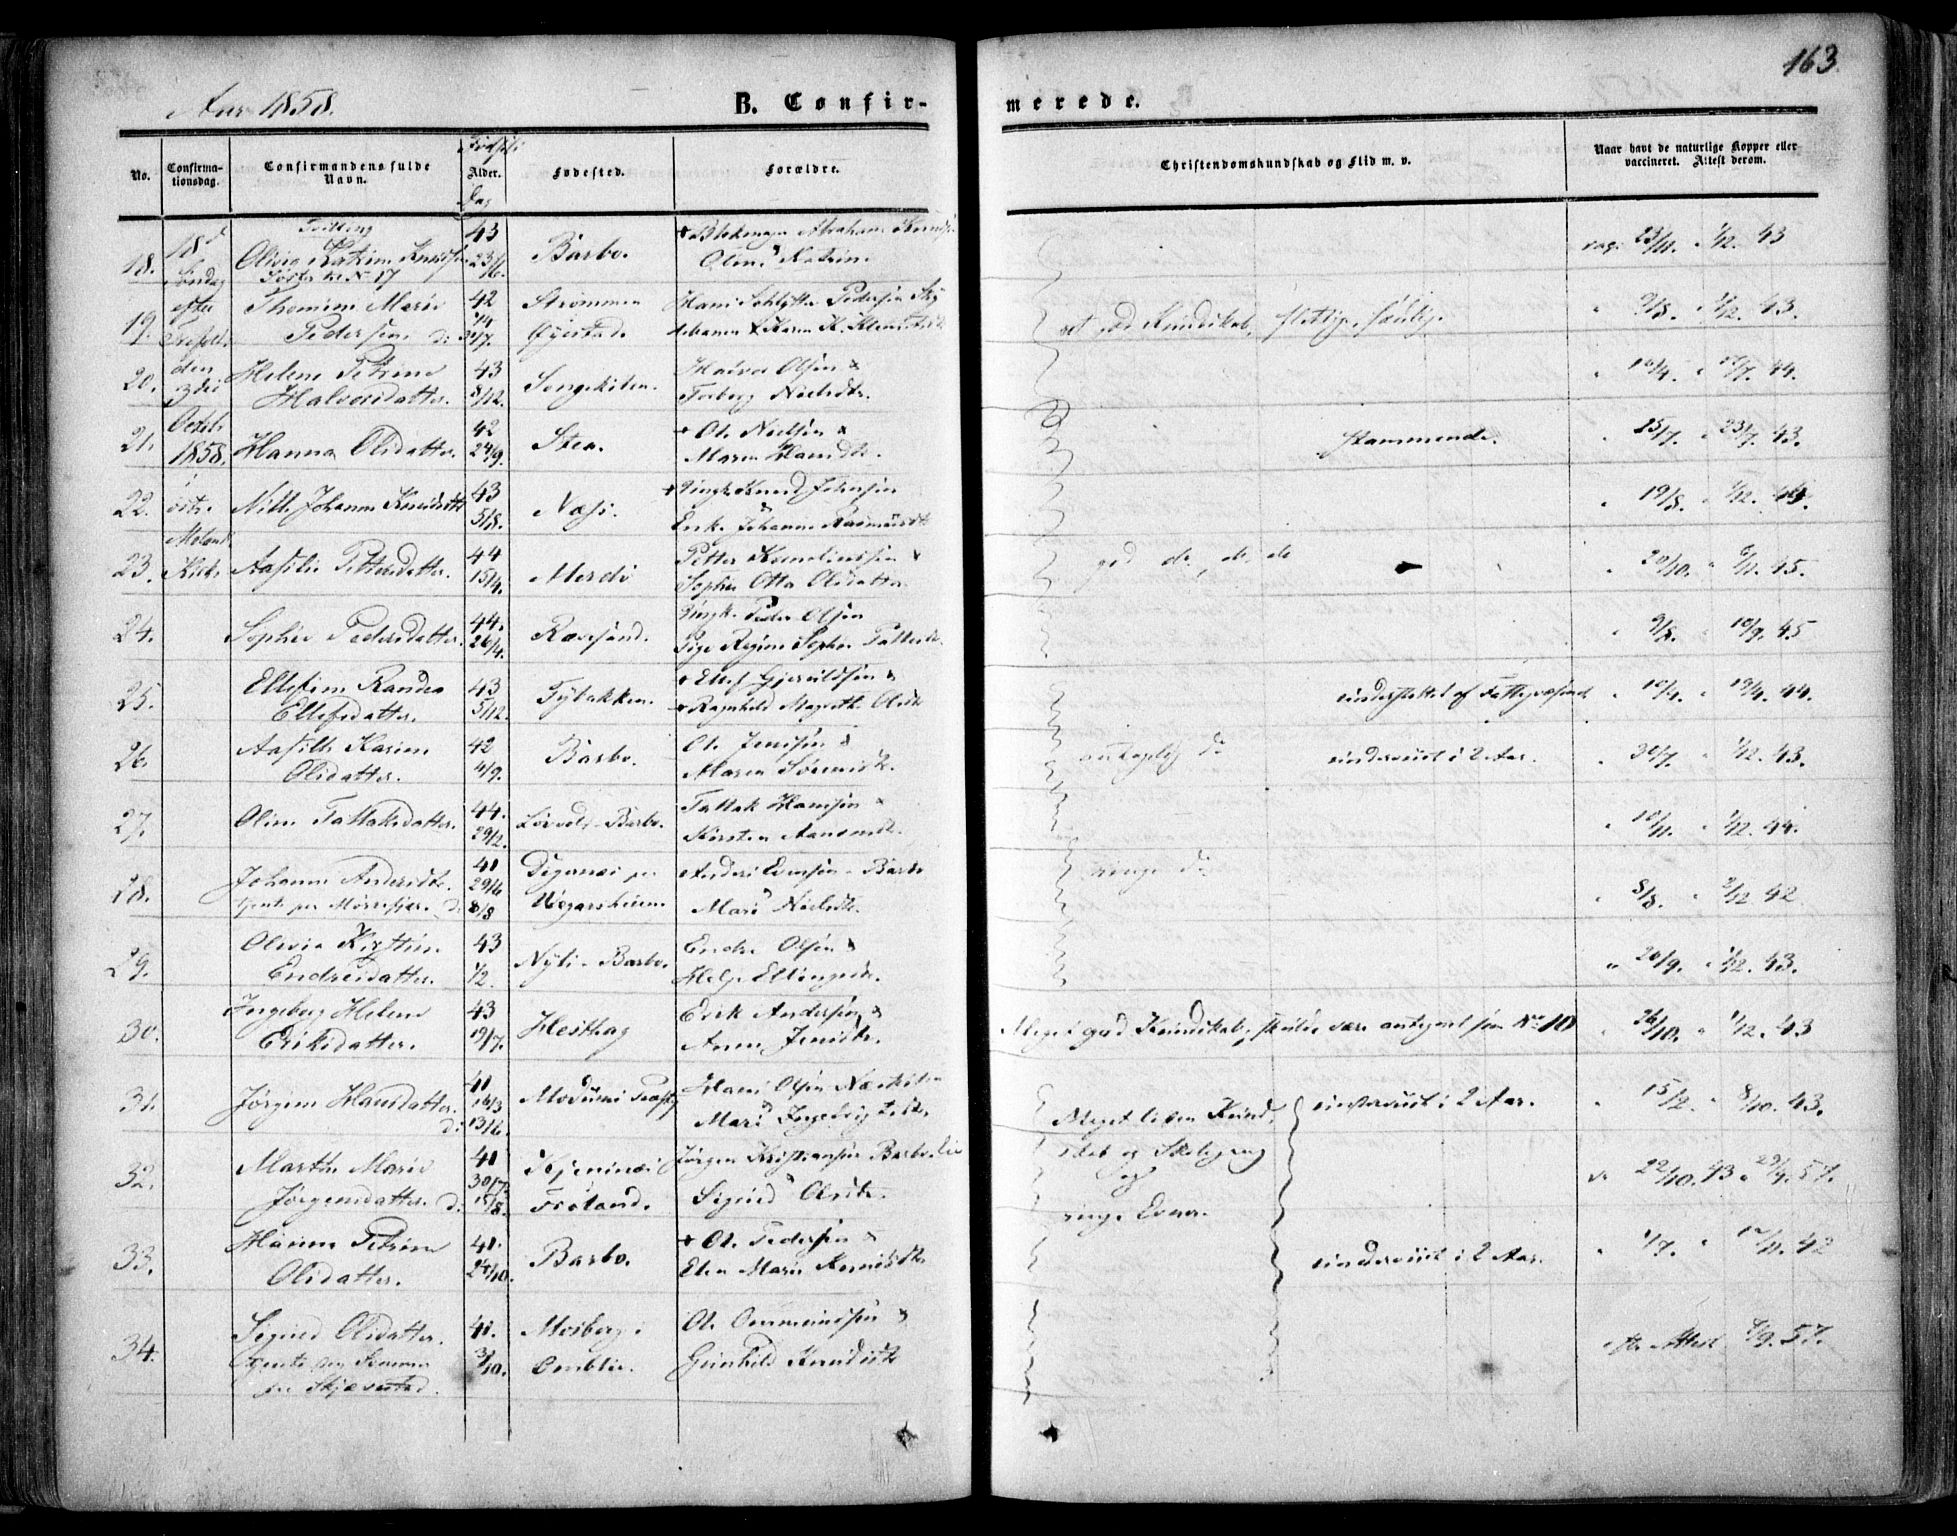 163
Aar 1858.
B. Confir-
merede.
No.
Confirma-
tionsdag.
Confirmandens fulde
Navn.
Alder.
Dag
Fødested.
Forældre.
Christendomskundskab og Flid m. v.
Naar havt de naturlige Kopper eller
vaccineret. Attest derom.
18.
18d
Søndag
efter
Trefold.
den
3die
Octob.
1858.
i
østre
Molands
Kirke
Tvilling
Olivia Katrine Knudsen
Søster til No 17
43
23/6.
Barbo.
+ Blokmager Abraham Knudsen
Oline Katrine
vac. 23/11. 1/12. 43
19.
Thomine Marie
Pedersen. d:
42
31/7.
Strømmen
Øyestad.
Hans Schlytter Pedersen
Karen K.
god Kundskab, flittig, sædelig.
9/8. 1/12. 43.
20.
Helene Petrine
Halvorsdatter.
43
8/12.
Songekilen.
Halvor Olsen &
Torborg Nielsdtr.
10/4. 44.
21.
Hanna Olsdatter.
42
24/9.
Sten.
+ Ole Nielsen &
Maren Hansdtr.
stammende.
25/7. 23/7. 43.
22.
Johanne Knudsdtr
43
5/8.
Næs.
+ Ungk. Knud Johnsen
Enke Johanne Rasmusdtr
19/8. 1/12.
23.
Aasilie Pettersdatter.
44
15/4.
Merdø
Petter Kornelius­sen &
Sophie Otta Olsdatter
god do, do, do
20/10. 6/11. 45.
24.
Sophie Pedersdatter.
44.
26/4.
Ravesund.
Ungk. Peder Olsen
Pige Regine Sophie
9/8. 10/9. 45
25.
Ellefine Randea
Ellefsdatter.
43
5/12.
Tybakken.
+ Ellef Gjeruldsen &
+ Ragnhild Magrethe Olsdtr
understøttet af Fattigvæsenet
10/4. 19/4. 44.
26.
Aasille Karine
Olsdatter.
42
4/9.
Barbo.
Ole Jensen &
Maren Sørensdtr.
do
undervist i 2 Aar.
30/7. 1/12. 43.
27.
Oline Tallaksdatter.
44.
29/2.
Løvold - Barbo.
Tallak Hansen &
Kirsten Aanonsdtr.
10/11. 1/12. 44.
28.
Johanne Andersdtr.
tjente paa Mørrefjær. d:
41
29/6
8/8
Digernæs paa
Vegarsheien.
Anders Evensen - Barbo
Mari Nielsdtr.
ringe do
8/8. 2/12 42
29.
Olevia Kirstine
Endresdatter.
43
1/2.
Nyli - Barbo.
Endre Olsen &
Helje Ellingsdtr.
20/9. 1/12. 43.
30.
Ingeborg Helene
Eriksdatter.
43
19/7.
Hesthag
Erik Andersen &
Anne Jensdtr.
Meget god Kundskab, skulde være antegnet som No 10
26/10. 1/12. 43
31.
Jørgine Hansdatter.
d:
41
16/3
13/6.
Modums Præstg.
Hans Olsen Næskilen
Mari Ingebrigtsdtr.
Meget liden Kund-
skab og Skolegang
og
ringe Evner.
undervist i 2 Aar.
15/12. 8/10. 43.
32.
Marthe Marie
Jørgensdatter. d:
41
30/7
15/8.
Froland.
Jørgen Kristiansen Barbo
Sigrid Olsdtr.
22/10. 43 23/9. 57.
33.
Marine Petrine
Olsdatter.
41.
24/10.
Barbo.
+ Ole Pedersen &
Elen Marie Knudsdtr
undervist i 2 Aar.
1/7. 12/11. 42
34.
Sigrid Olsdatter.
paa Skjævestad.
41.
3/10.
Mosberg i
Omblie.
Ole Ommundsen &
Gunhild Knudsdtr
Attest 4/9. 57.